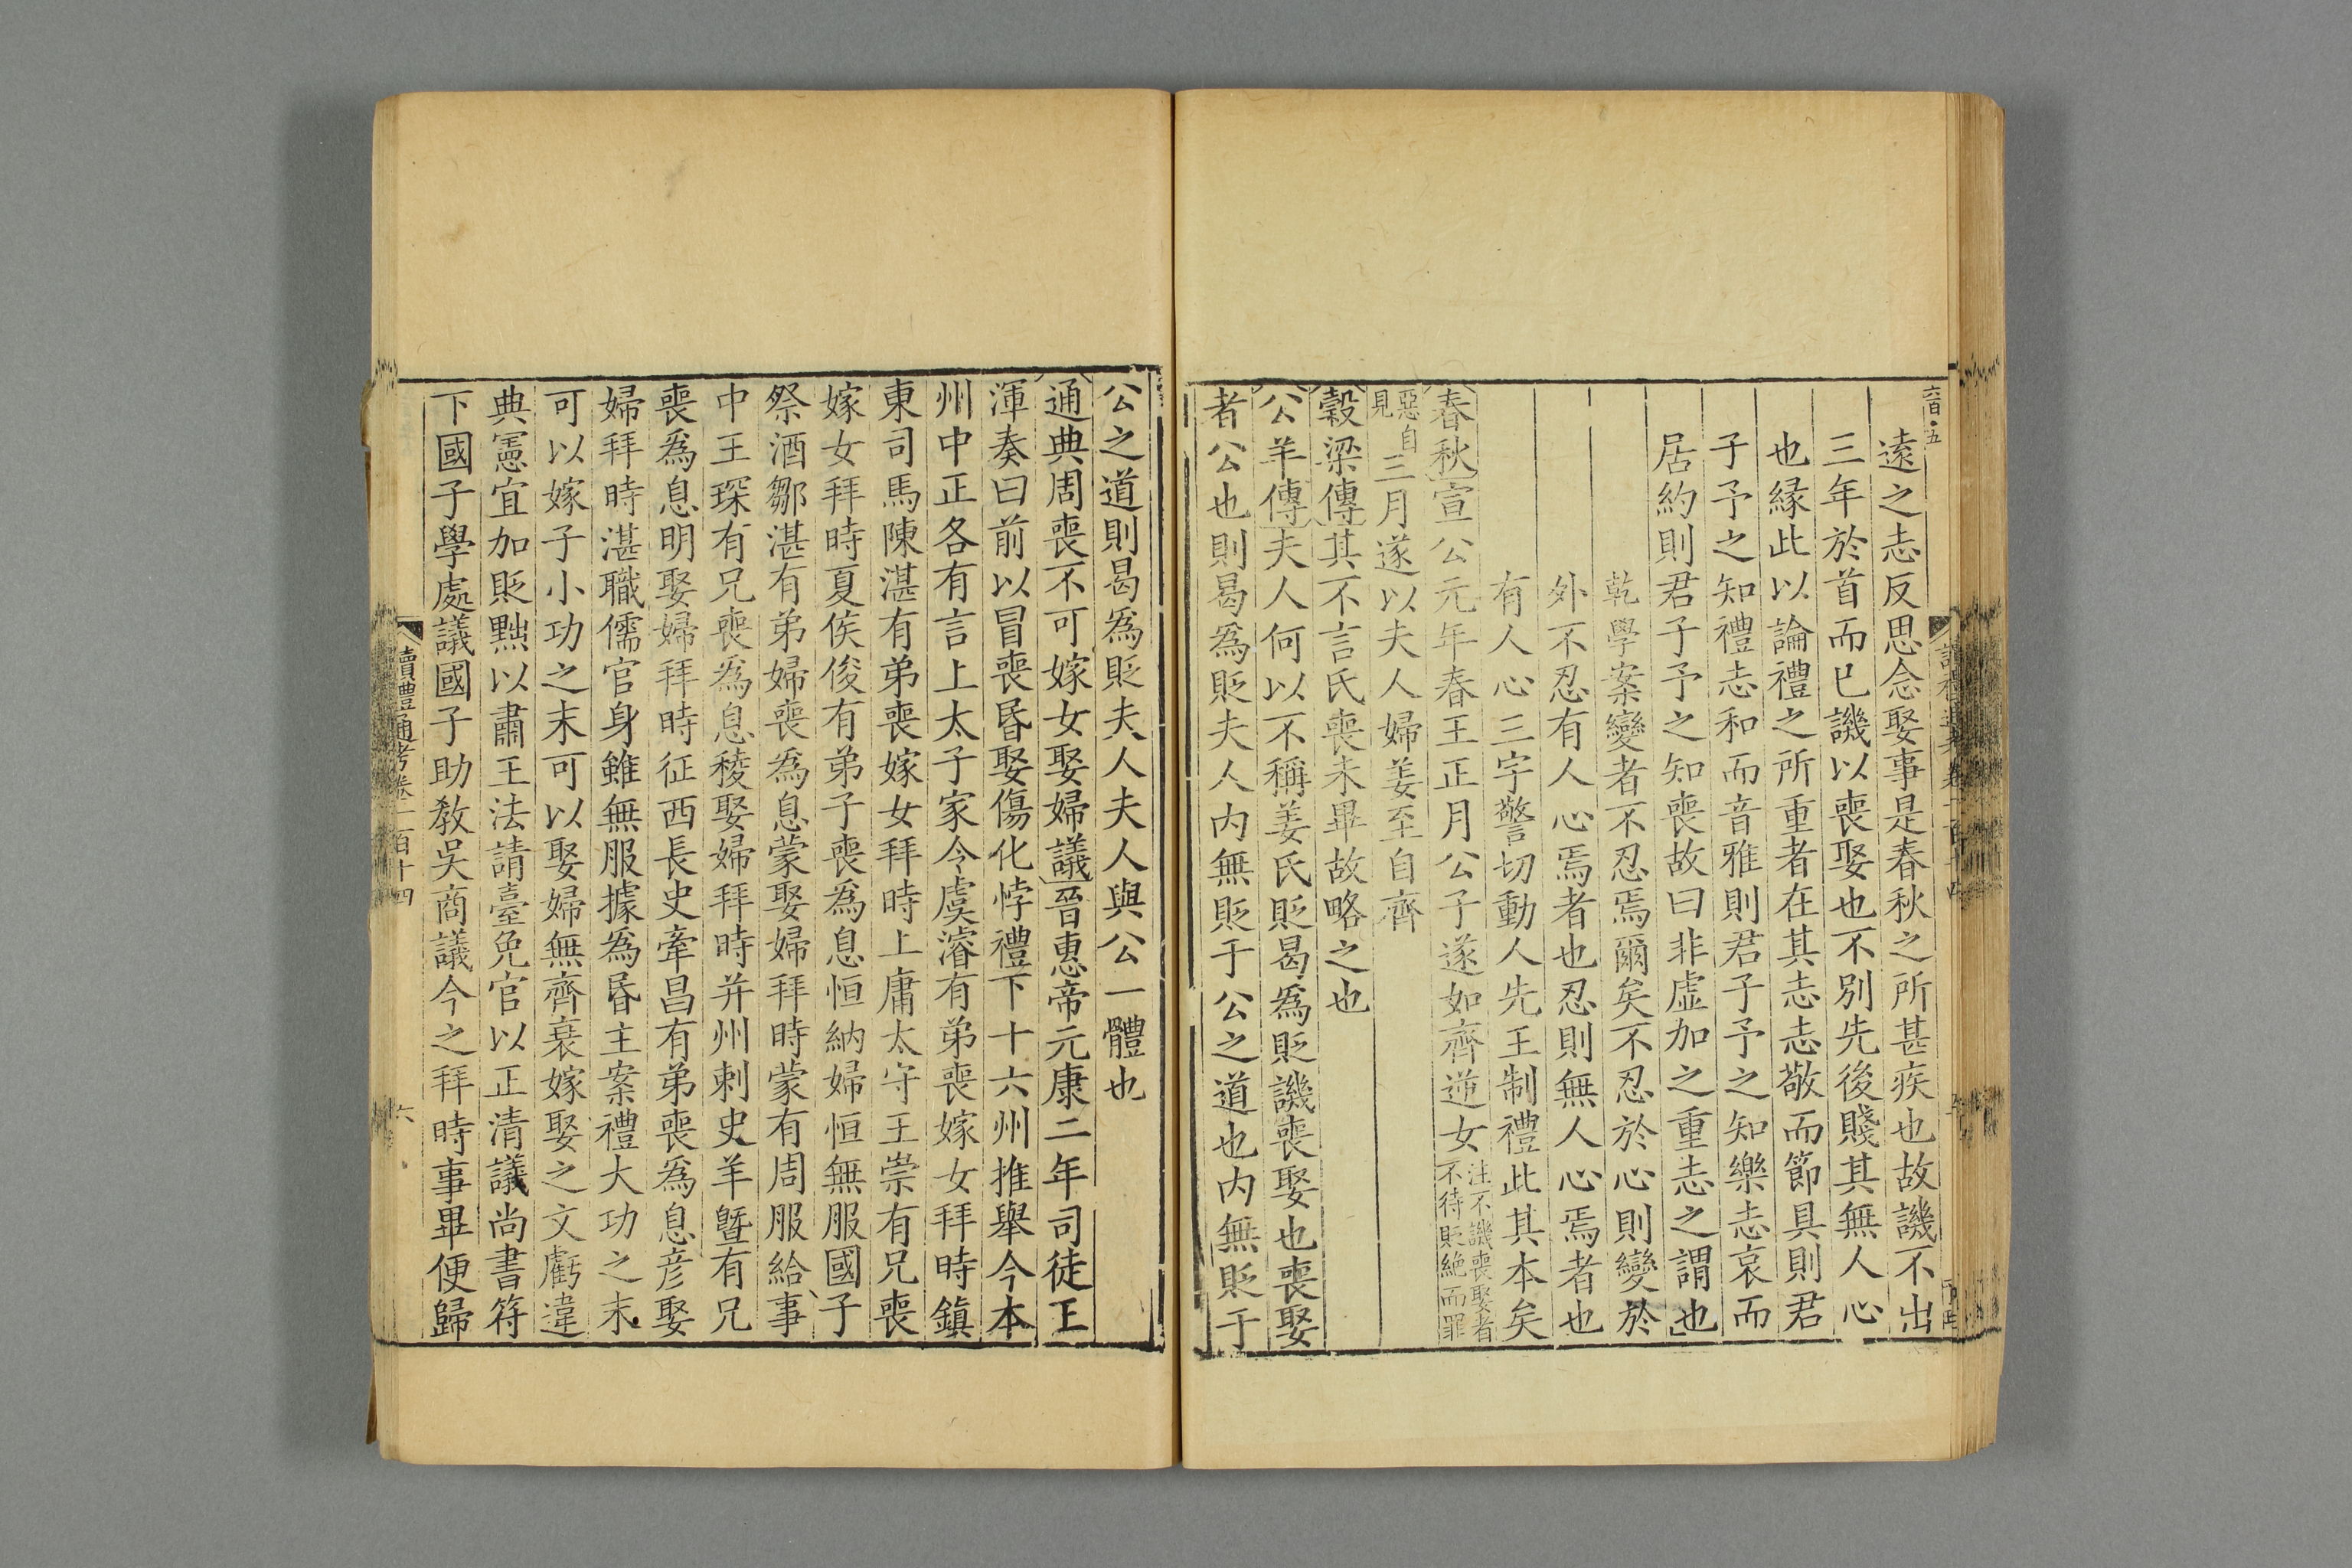 六百五
遠之志反思念娶事是春秋之所甚疾也故譏不出
三年於首而已譏以喪娶也不別先後賤其無人心
也緣此以論禮之所重者在其志志敬而節具則君
子予之知禮志和而音雅則君子予之知樂志哀而
居約則君子予之知喪故曰非虛加之重志之謂也
乾學案變者不忍焉爾矣不忍於心則變於
外不忍有人心焉者也忍則無人心焉者也
有人心三字警切動人先王制禮此其本矣
春秋宣公元年春王正月公子遂如齊逆女注不譏喪娶者不待貶絶而罪
惡自見三月遂以夫人婦姜至自齊
穀梁傳其不言氏喪未畢故略之也
公羊傳夫人何以不稱姜氏貶曷爲貶譏喪娶也喪娶
者公也則曷爲貶夫人內無貶于公之道也內無貶于
公之道則曷爲貶夫人夫人與公一體也
通典周喪不可嫁女娶婦議晉惠帝元康二年司徒王
渾奏曰前以冒喪昏娶傷化悖禮下十六州推舉今本
州中正各有言上太子家令虞濬有弟喪嫁女拜時鎮
東司馬陳湛有弟喪嫁女拜時上庸太守王崇有兄喪
嫁女拜時夏侯俊有弟子喪爲息恒納婦恒無服國子
祭酒鄒湛有弟婦喪爲息蒙娶婦拜時蒙有周服給事
中王琛有兄喪爲息稜娶婦拜時并州刺史羊曁有兄
喪爲息明娶婦拜時征西長史牽昌有弟喪爲息彥娶
婦拜時湛職儒官身雖無服據爲昏主案禮大功之末
可以嫁子小功之末可以娶婦無齊衰嫁娶之文虧違
典憲宜加貶黜以肅王法請臺免官以正清議尚書符
下國子學處議國子助敎吳商議今之拜時事畢便歸
讀禮通考卷一百十四
六